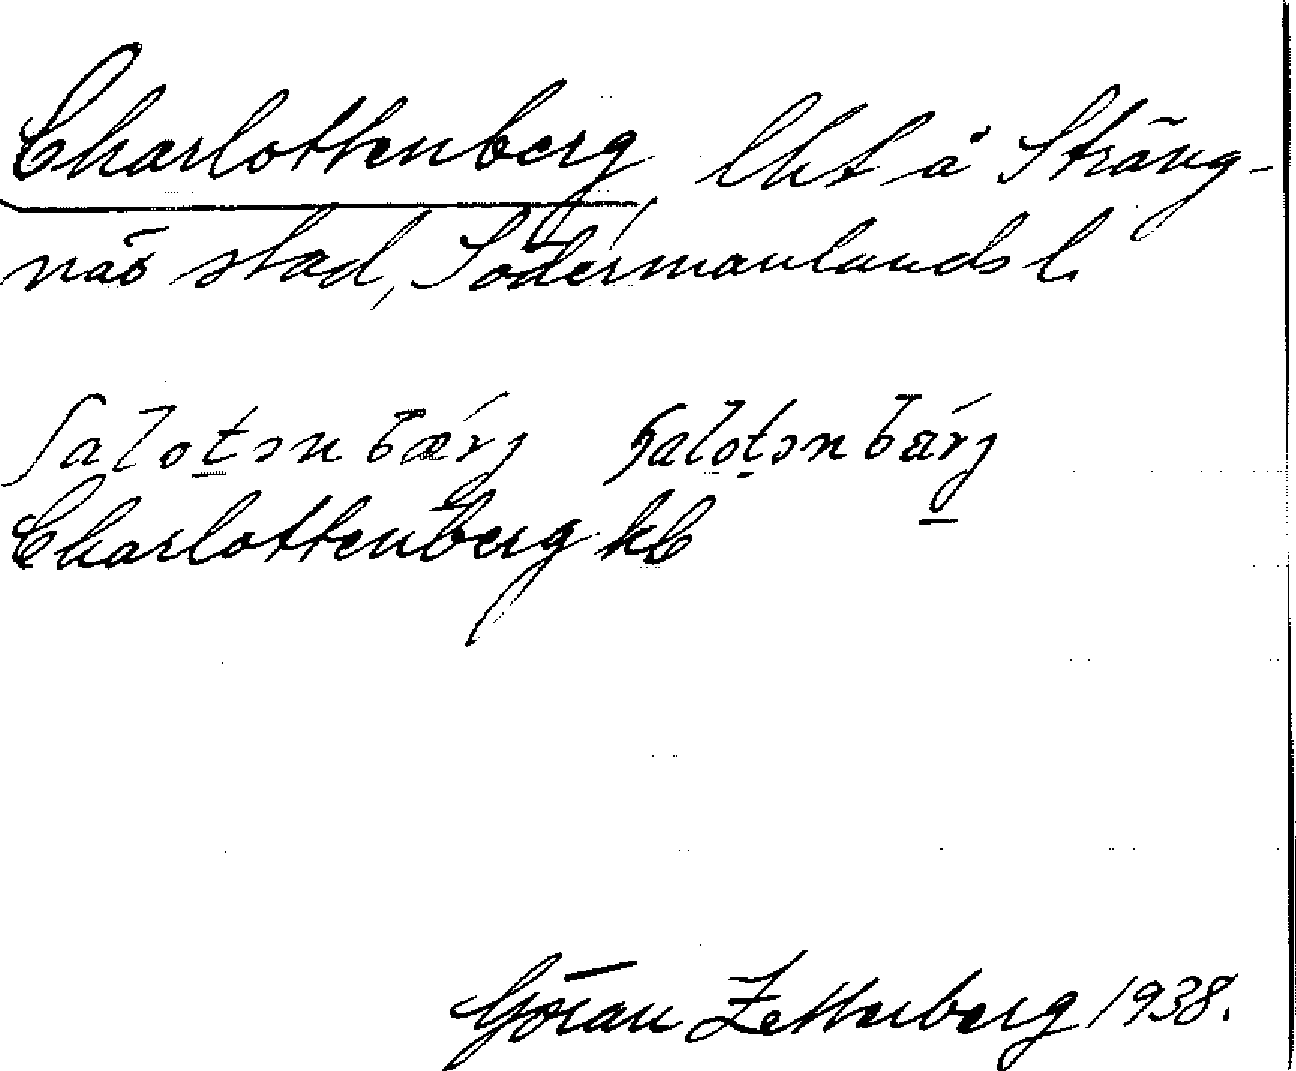 Charlottenberg lht å Sträng-
näs stad, Södermanlands l.
ʃalotənbærj ɧalotənbærj
Charlottenberg kb
Göran Zetterberg 1938.